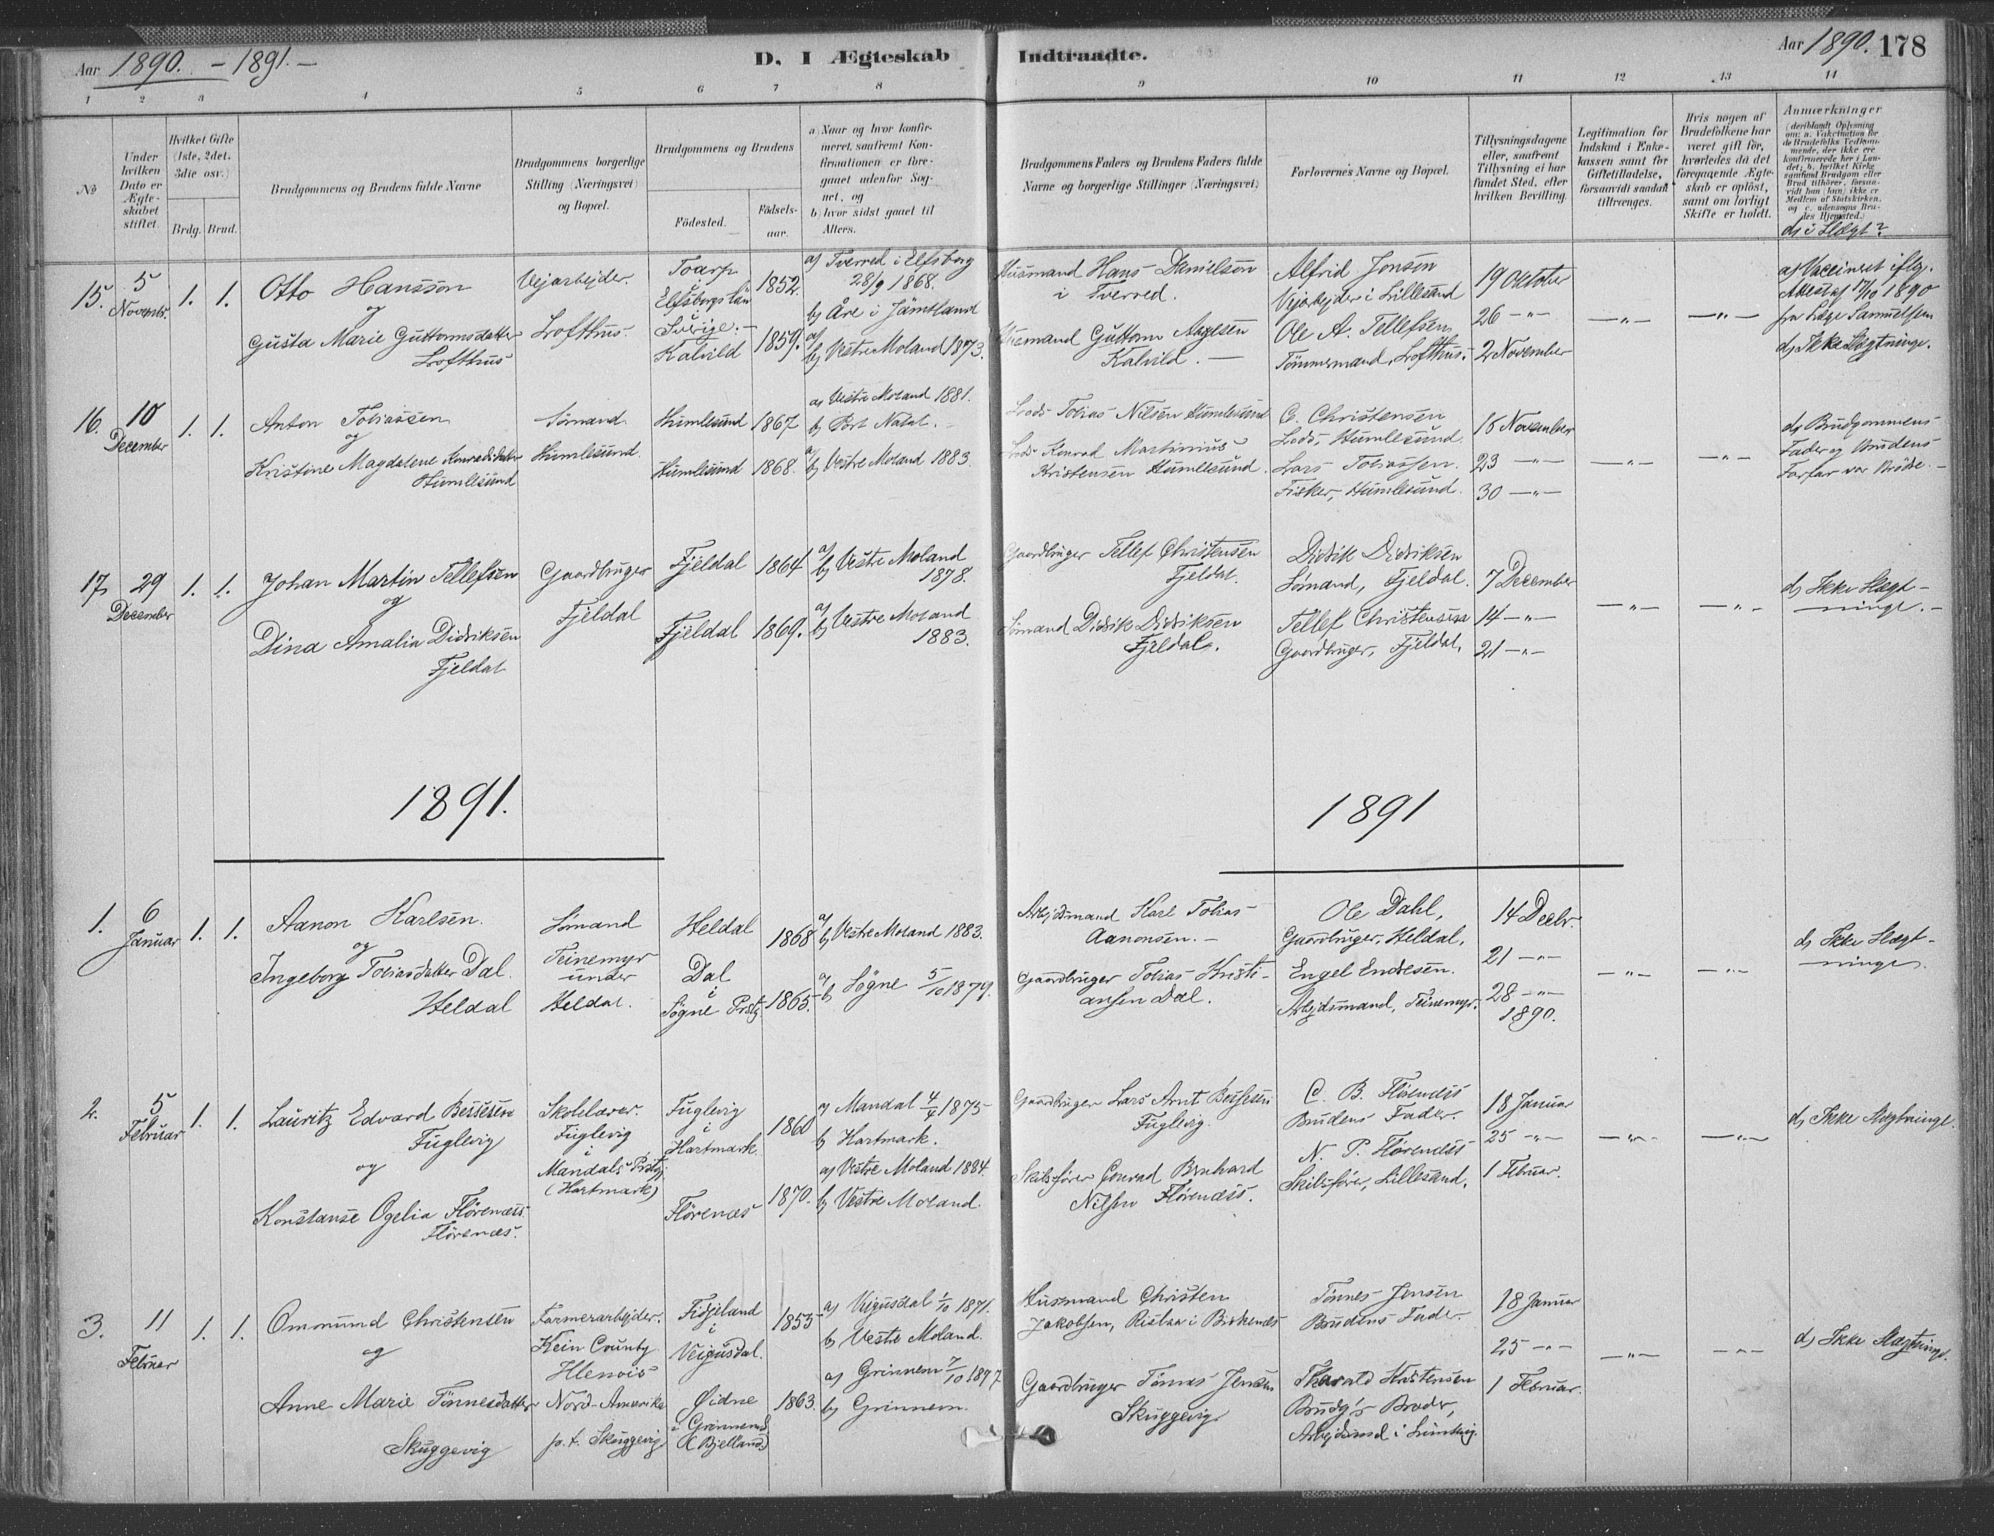 Aar 1890. - 1891. -
D. I Ægteskab Indtraadte.
Aar 1890. 178
1 2 3 4 5 6 7 8 9 10 11 12 13 14
No
Under hvilken Dato er Ægteskabet stiftet.
Hvilket Gifte (1ste, 2det, 3die osv.)
Brdg. Brud.
Brudgommens og Brudens fulde Navne
Brudgommens borgerlige Stilling (Næringsvei) og Bopæl.
Brudgommens og Brudens
Fødested. Fødselsaar.
a) Naar og hvor konfirmeret, saafremt Konfirmationen er foregaaet udenfor Sognet, og
b) hvor sidst gaaet til Alters.
Brudgommens Faders og Brudens Faders fulde Navne og borgerlige Stillinger (Næringsvei)
Forlovernes Navne og Bopæl.
Tillysningsdagene eller, saafremt Tillysning ei har fundet Sted, efter hvilken Bevilling.
Legitimation for Indskud i Enkekassen samt for Giftetilladelse, forsaavidt saadan tiltrænges.
Hvis nogen af Brudefolkene har været gift før, hvorledes da det foregaaende Ægteskab er opløst, samt om lovligt Skifte er holdt.
Anmærkninger
d) i Slægt?
15. 5 November. 1. 1.
Otto Hansson
og
Gusta Marie Guttormsdatter
Lofthus
Vejarbejder.
Lofthus.
Toarp
Elfsborgs Län
i
Sverige. -
Kalvild
1852.
1859.
a) Tverred i Elfsborg
28/9 1868.
b) Åre i Jämtland
a)
b) Vestre Moland 1873.
Husmand Hans Danielson
i Tverred.
Husmand Guttorm Axelsen
Kalvild. -
Alfrid Jonson
Vejarbejder i Lillesand
Ole A. Tellefsen
Tømmermand, Lofthus.
19 Oktober
26 -"-
2 November
-"- -"-
a) Vaccineret iflg.
Attest af 17/10 1890
fra Læge Samuelsen
d) Ikke Slægtninge.
16. 10 December 1. 1.
Anton Tobiassen
og
Kristine Magdalene Konradsdatter
Humlesund
Sømand.
Humlesund.
Humlesund
Humlesund
1867
1868.
a) Vestre Moland 1881.
b) Port Natal. -
a)
b) Vestre Moland 1883.
Lods Tobias Nilsen Humlesund
Lods Konrad Martinius
Kristensen Humlesund.
C. Christensen
Lods, Humlesund.
Lars Tobiassen.
Fisker, Humlesund.
16 November
23 -"-
30 -"-
-"- -"-
d) Brudgommens
Fader og Brudens
Farfar var Brødre. -
17. 29 December 1. 1.
Johan Martin Tellefsen
og
Dina Amalia Didriksen
Fjeldal
Gaardbruger
Fjeldal
Fjeldal
Fjeldal
1864
1869.
a)
b) Vestre Moland
1878.
a)
b) Vestre Moland
1883.
Gaardbruger Tellef Christensen
Fjeldal.
Sømand Didrik Didriksen
Fjeldal.
Didrik Didriksen
Sømand, Fjeldal.
Tellef Christensen
Gaardbruger, Fjeldal.
7 December
14 -"-
21 -"-
-"- -"-
d) Ikke Slægt-
ninge. -
1891. 1891
1. 6 Januar 1. 1.
Aanon Karlsen.
og
Ingeborg Tobiasdatter Dal.
Heldal
Sømand
Teinemyr
under
Heldal.
Heldal
Dal
i
Søgne Prstgj.
1868
1865.
a)
b) Vestre Moland 1883.
a)
b) Søgne 5/10 1879.
Arbejdsmand Karl Tobias
Aanonsen. -
Gaardbruger Tobias Kristi-
ansen Dal.
Ole Dahl,
Gaardbruger, Heldal,
Engel Endresen.
Arbejdsmand, Teinemyr.
14 Decbr.
21 -"-
28 -"-
1890.
-"- -"-
d) Ikke Slægt-
ninge.
2. 5 Februar 1. 1.
Lauritz Edvard Bessesen
Fuglevig
og
Konstanse Ogelia Flørenæss.
Flørenæs.
Skolelærer.
Fuglevig
i
Mandals Prstgj.
(Hartmark)
Fuglevig
i
Hartmark
Flørenæs
1860
1870.
a) Mandal 4/4 1875
b) Hartmark.
a) Vestre Moland 1884.
b) Vestre Moland.
Gaardbruger Lars Arnt Bessesen
Fuglevig.
Skibsfører Conrad Bernhard
Nilsen Flørenæss.
C. B. Flørenæss
Brudens Fader.
N. P. Flørenæss
Skibsfører, Lillesand.
18 Januar
25 -"-
1 Februar.
-"- -"-
d) Ikke Slægtninge.
3. 11 Februar 1. 1.
Ommund Christensen
og
Anne Marie Tønnesdatter
Skuggevig
Farmerarbejder.
Kein County
Illenois
Nord-Amerika
p.t. Skuggevig
Fidjeland
i
Veigusdal.
Øidne
i Grinnem
(Bjelland)
1855
1863.
a) Vejgusdal 1/10 1871.
b) Vestre Moland.
a) Grinnem 7/10 1877
b) Grinnem.
Husmand Christen
Jakobsen, Risløa i Birkenæs
Gaardbruger Tønnes Jensen
Skuggevig
Tønnes Jensen
Brudens Fader.
Tharald Kristensen
Brudg's Broder,
18 Januar
25 -"-
1 Februar.
-"- -"-
d) Ikke Slægtninge.